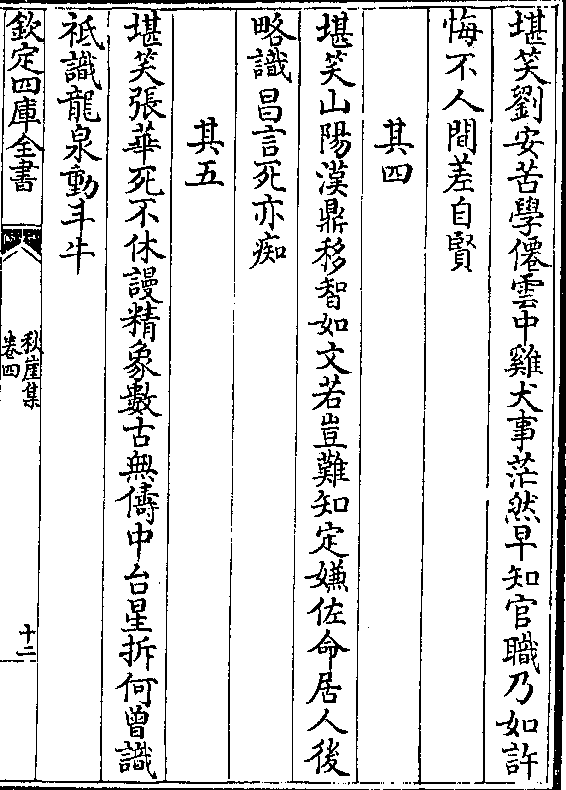 堪笑劉安苦學僊雲中雞犬事茫然早知官職乃如許
悔不人間差自賢
其四
堪笑山陽漢鼎移智如文若豈難知定嫌佐命居人後
略識昌言死亦痴
其五
堪笑張華死不休謾精象數古無儔中台星拆何曾識
祗識龍泉動斗牛
欽定四庫全書
秋崖集
卷四
十二